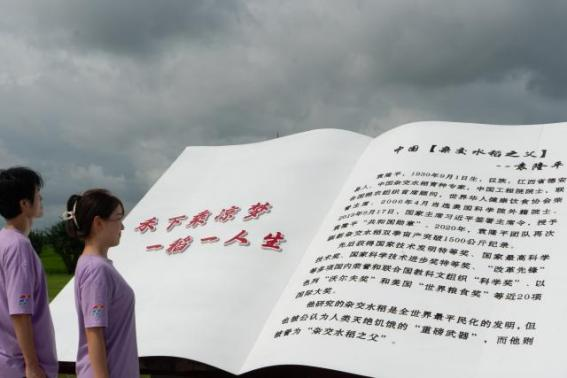 禾下乘凉梦
一稻一人生
中国【杂交水稻之父】
--袁隆平
袁隆平,1930年9月1日生,汉族,江西省德安
县人,中国杂交水稻育种专家,中国工程院院士,联
合国粮农组织首席顾问,世界华人健康饮食协会荣
誉主席。2006年4月当选美国科学院外籍院士,
2019年9月17日,国家主席习近平签署主席令,授予
袁隆平“共和国勋章”。2020年,袁隆平团队再次
刷新杂交水稻双季亩产突破1500公斤纪录。
先后获得国家技术发明特等奖、国家最高科学
技术奖、国家科学技术进步奖特等奖、“改革先锋”
等多项国内荣誉和联合国教科文组织“科学奖”、以
色列“沃尔夫奖”和美国“世界粮食奖”等近20项
国际大奖。
他研究的杂交水稻是全世界最平民化的发明,但
也被公认为人类灭绝饥饿的“重磅武器”,而他则
被誉为“杂交水稻之父”。